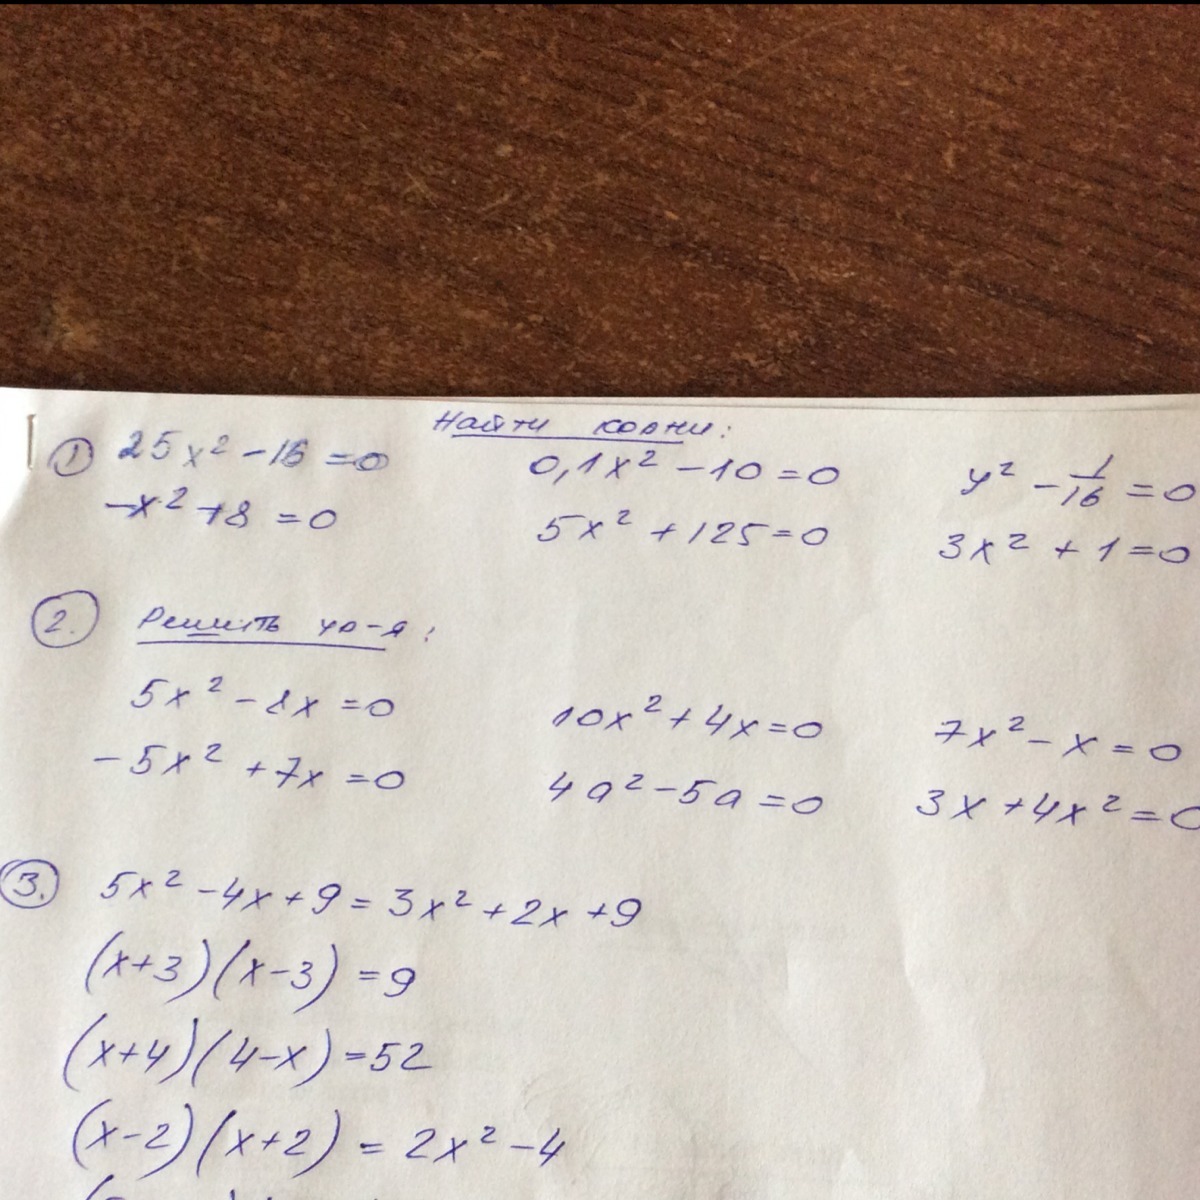 Найти корни:
① 25x² - 16 = 0    0,1x² - 10 = 0    y² - 1/16 = 0
-x² + 8 = 0    5x² + 125 = 0    3x² + 1 = 0
②. Решить ур-я:
5x² - 8x = 0    10x² + 4x = 0    7x² - x = 0
-5x² + 7x = 0    4a² - 5a = 0    3x + 4x² = 0
③. 5x² - 4x + 9 = 3x² + 2x + 9
(x+3)(x-3) = 9
(x+4)(4-x) = 52
(x-2)(x+2) = 2x² - 4